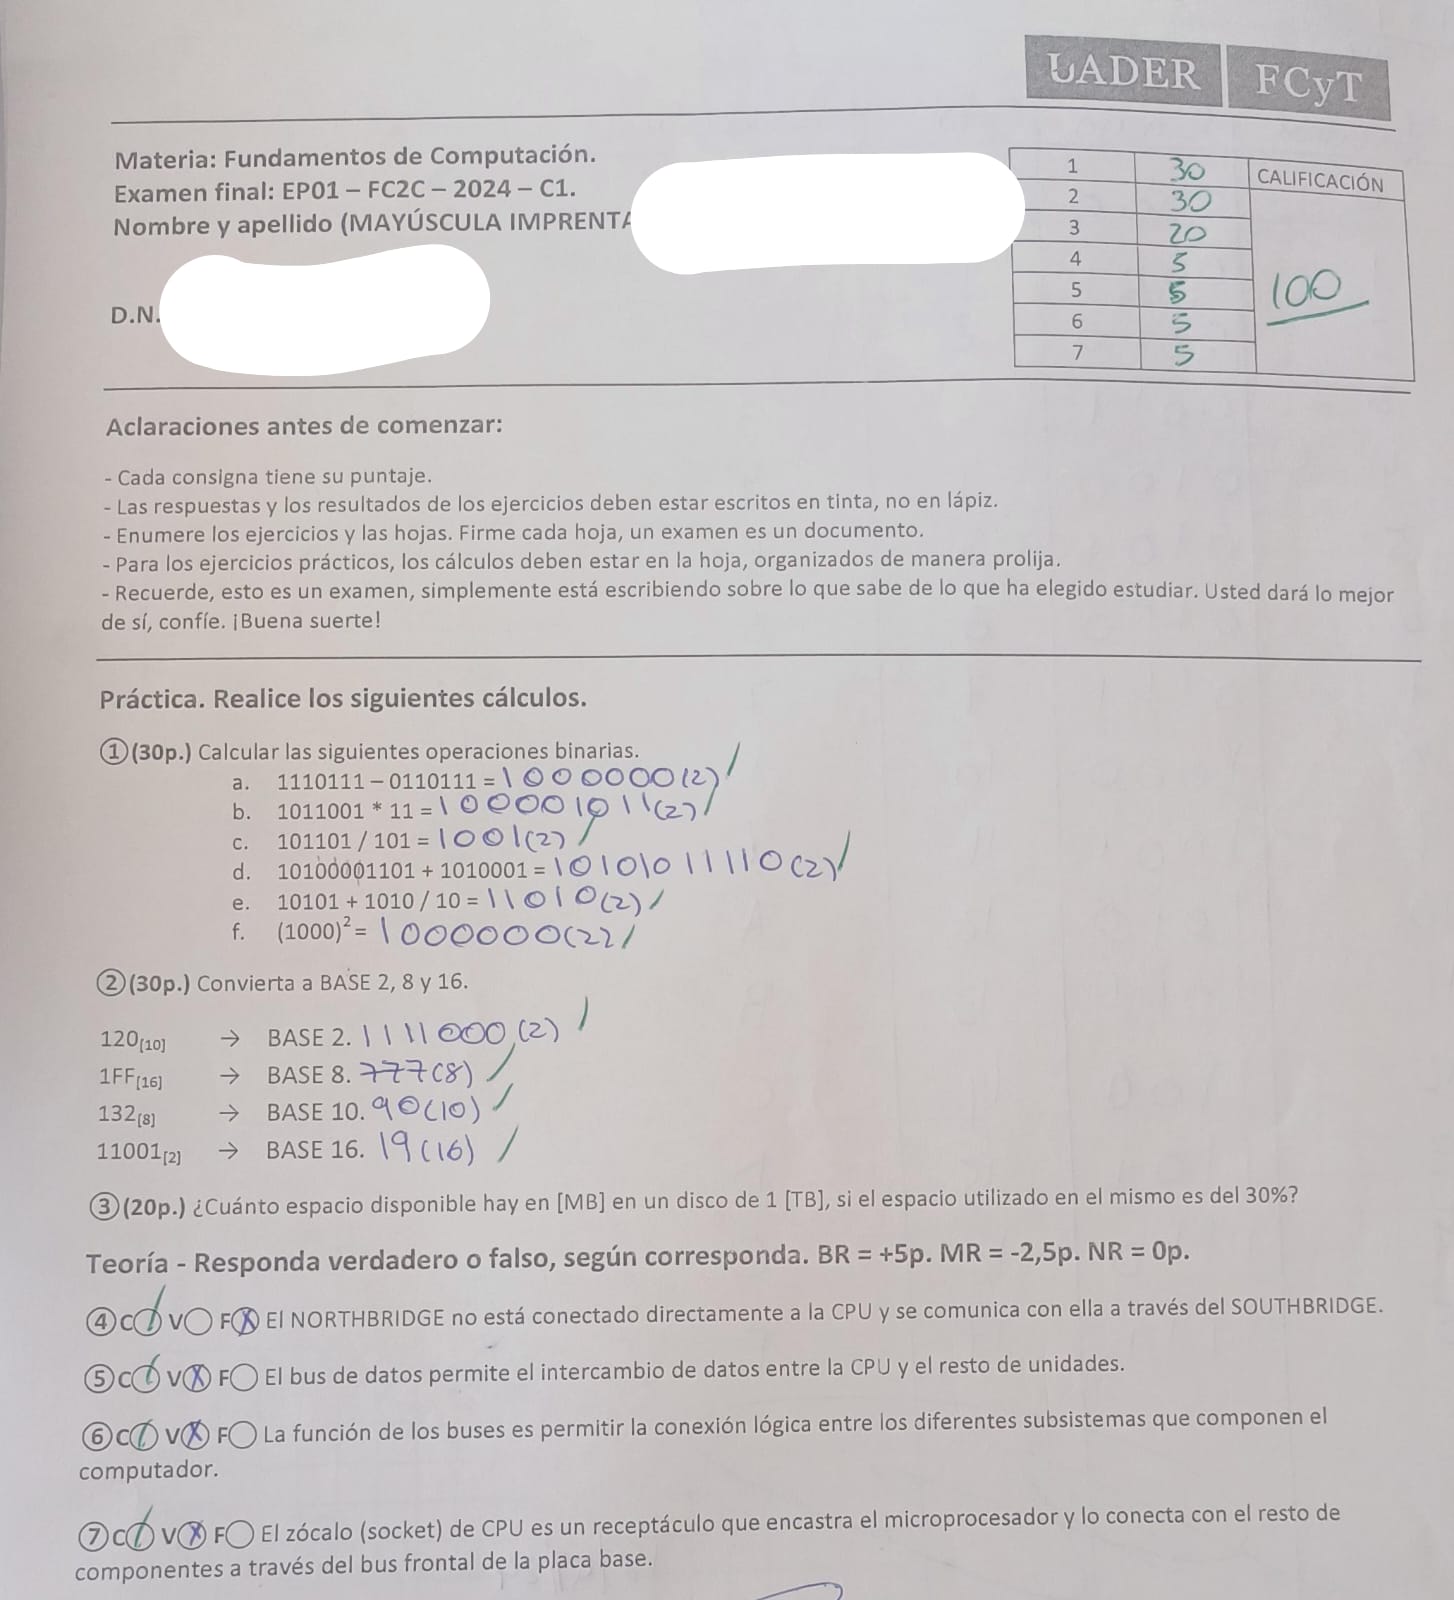 UADER FCyT
Materia: Fundamentos de Computación.
Examen final: EP01 – FC2C – 2024 – C1.
Nombre y apellido (MAYÚSCULA IMPRENTA
D.N.
1 30 CALIFICACIÓN
2 30
3 20
4 5
5 5
6 5
7 5
100
Aclaraciones antes de comenzar:
- Cada consigna tiene su puntaje.
- Las respuestas y los resultados de los ejercicios deben estar escritos en tinta, no en lápiz.
- Enumere los ejercicios y las hojas. Firme cada hoja, un examen es un documento.
- Para los ejercicios prácticos, los cálculos deben estar en la hoja, organizados de manera prolija.
- Recuerde, esto es un examen, simplemente está escribiendo sobre lo que sabe de lo que ha elegido estudiar. Usted dará lo mejor
de sí, confíe. ¡Buena suerte!
Práctica. Realice los siguientes cálculos.
①(30p.) Calcular las siguientes operaciones binarias.
a. 1110111 – 0110111 = 1000000(2)
b. 1011001 * 11 = 100001011(2)
c. 101101 / 101 = 1001(2)
d. 10100001101 + 1010001 = 10101011110(2)
e. 10101 + 1010 / 10 = 11010(2)
f. (1000)² = 1000000(2)
②(30p.) Convierta a BASE 2, 8 y 16.
120[10] → BASE 2. 1111000(2)
1FF[16] → BASE 8. 777(8)
132[8] → BASE 10. 90(10)
11001[2] → BASE 16. 19(16)
③(20p.) ¿Cuánto espacio disponible hay en [MB] en un disco de 1 [TB], si el espacio utilizado en el mismo es del 30%?
Teoría - Responda verdadero o falso, según corresponda. BR = +5p. MR = -2,5p. NR = 0p.
④C○ V○ FⓍ El NORTHBRIDGE no está conectado directamente a la CPU y se comunica con ella a través del SOUTHBRIDGE.
⑤C○ VⓍ F○ El bus de datos permite el intercambio de datos entre la CPU y el resto de unidades.
⑥C○ VⓍ F○ La función de los buses es permitir la conexión lógica entre los diferentes subsistemas que componen el
computador.
⑦C○ VⓍ F○ El zócalo (socket) de CPU es un receptáculo que encastra el microprocesador y lo conecta con el resto de
componentes a través del bus frontal de la placa base.